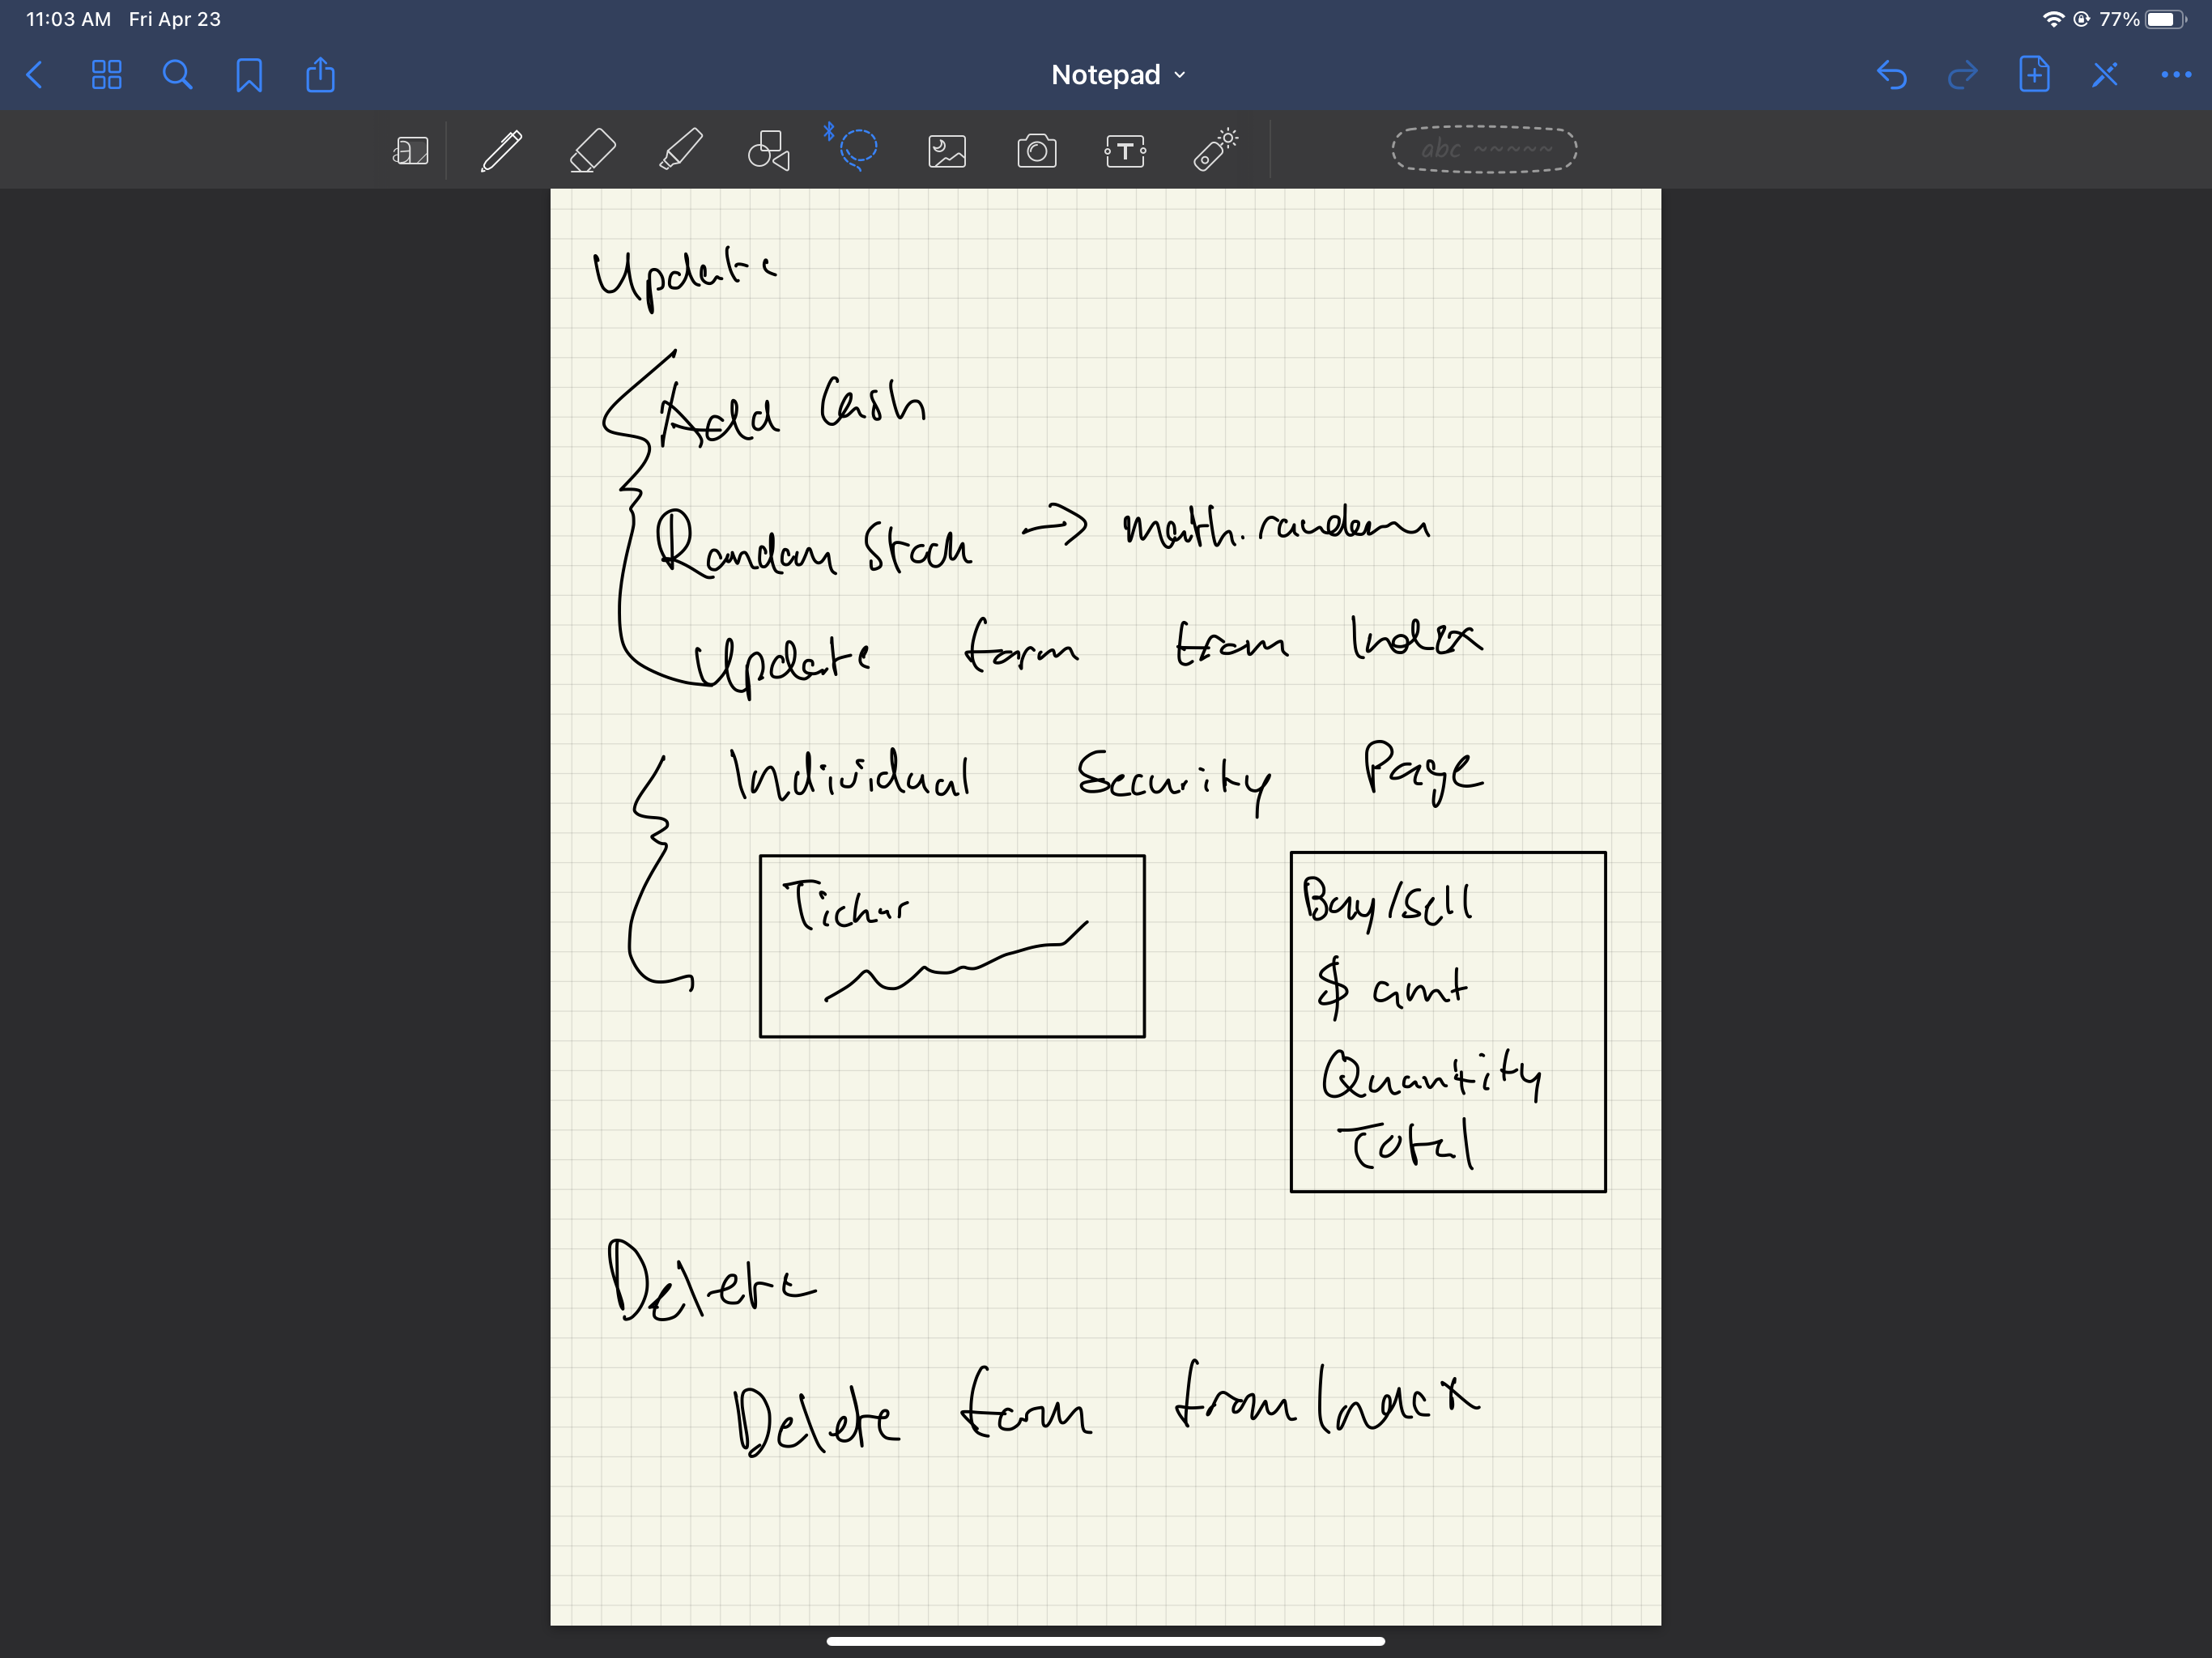 11:03 AM Fri Apr 23
77%
Notepad
abc
T
Update
Add Cash
Random → math.random
Update form from Index
Individual Security Page
Ticker
Buy/Sell
$ amt
Quantity
Total
Delete
Delete form from Index